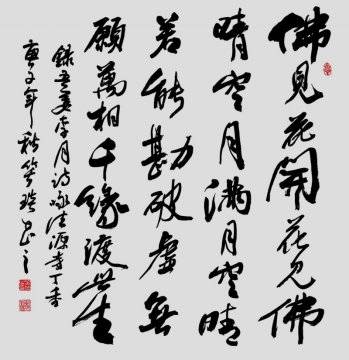 佛見花開花見佛
晴空月滿月空晴
若能勘破虛無
願萬相千緣渡此生
錄吾李月詩咏法源寺丁香
庚子年秋